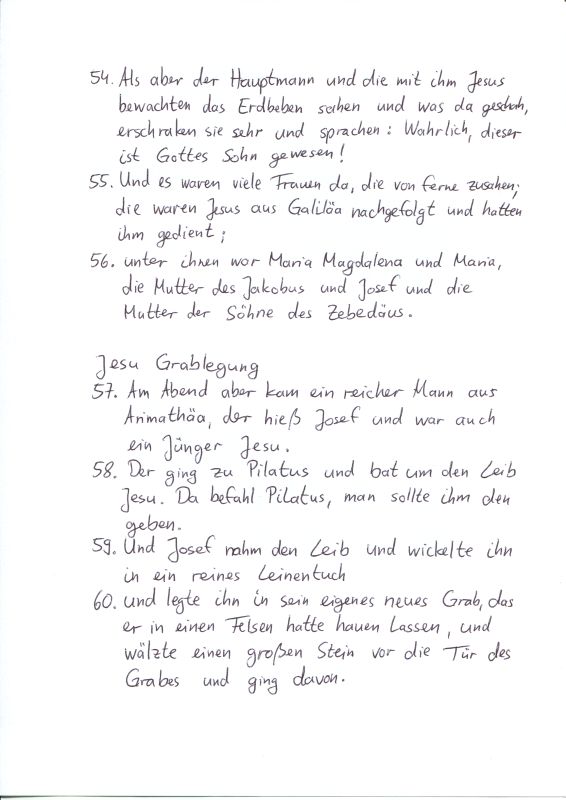 54. Als aber der Hauptmann und die mit ihm Jesus
bewachten das Erdbeben sahen und was da geschah,
erschraken sie sehr und sprachen: Wahrlich, dieser
ist Gottes Sohn gewesen!
55. Und es waren viele Frauen da, die von ferne zusahen;
die waren Jesus aus Galiläa nachgefolgt und hatten
ihm gedient;
56. unter ihnen war Maria Magdalena und Maria,
die Mutter des Jakobus und Josef und die
Mutter der Söhne des Zebedäus.
Jesu Grablegung
57. Am Abend aber kam ein reicher Mann aus
Arimathäa, der hieß Josef und war auch
ein Jünger Jesu.
58. Der ging zu Pilatus und bat um den Leib
Jesu. Da befahl Pilatus, man sollte ihm den
geben.
59. Und Josef nahm den Leib und wickelte ihn
in ein reines Leinentuch
60. und legte ihn in sein eigenes neues Grab, das
er in einen Felsen hatte hauen lassen, und
wälzte einen großen Stein vor die Tür des
Grabes und ging davon.